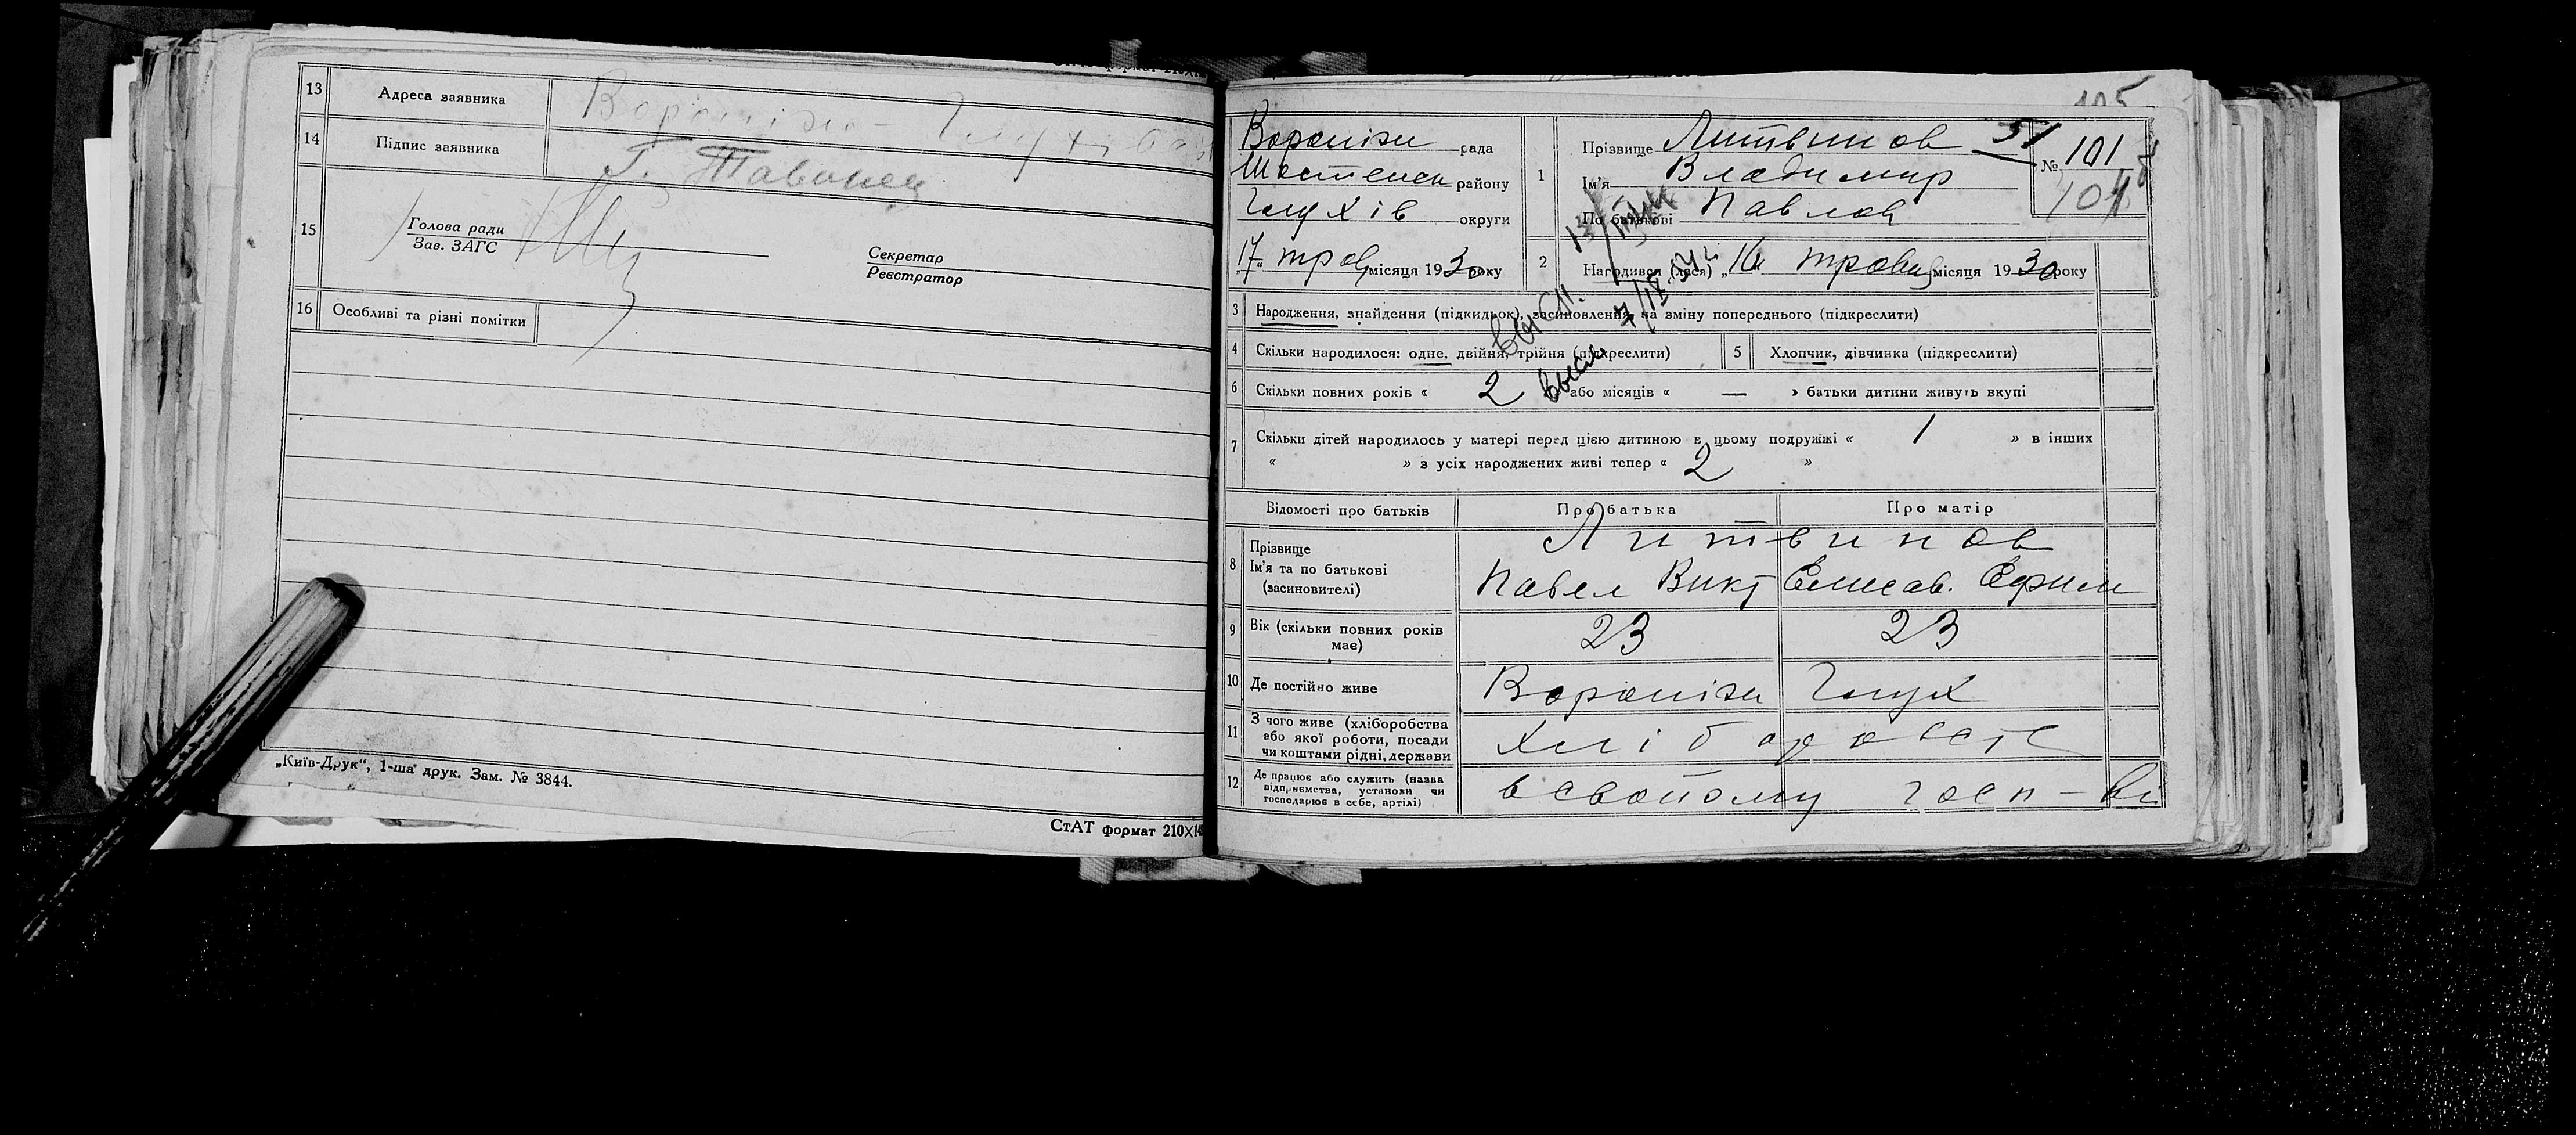 СтАТ формат 210Х1
13 Адреса заявника Вороніж - Глухівськ
14 Підпис заявника Г. Тавонец
15 Голова ради
Зав. ЗАГС
Секретар
Реєстратор
16 Особливі та різні помітки
„Київ-Друк“, 1-ша друк. Зам. № 3844.
СтАТ формат 210Х14
105
Вороніжн рада
Шостенск району
Глухів округи
„17“ трав місяця 1930 року
1 Прізвище Литвинов 51
Ім'я Владимир
По батькові Павлов
№ 101
101
2 Народився (лася) „16“ травня місяця 1930 року
3 Народження, знайдення (підкидьок), засиновлення, на зміну попереднього (підкреслити)
4 Скільки народилося: одне, двійня, трійня (підкреслити)
5 Хлопчик, дівчинка (підкреслити)
6 Скільки повних років « 2 » або місяців « — » батьки дитини живуть вкупі
7 Скільки дітей народилось у матері перед цією дитиною в цьому подружжі « 1 » в інших
« » з усіх народжених живі тепер « 2 »
Відомості про батьків Про батька Про матір
8 Прізвище Литвинов
Ім'я та по батькові Павел Викт Елисав. Ефим
(засиновителі)
9 Вік (скільки повних років має) 23 23
10 Де постійно живе Вороніжн Глух
11 З чого живе (хліборобства
або якої роботи, посади
чи коштами рідні, держави
12 Де працює або служить (назва
підприємства, установи чи
господарює в себе, артілі)
в свойому госп-ві